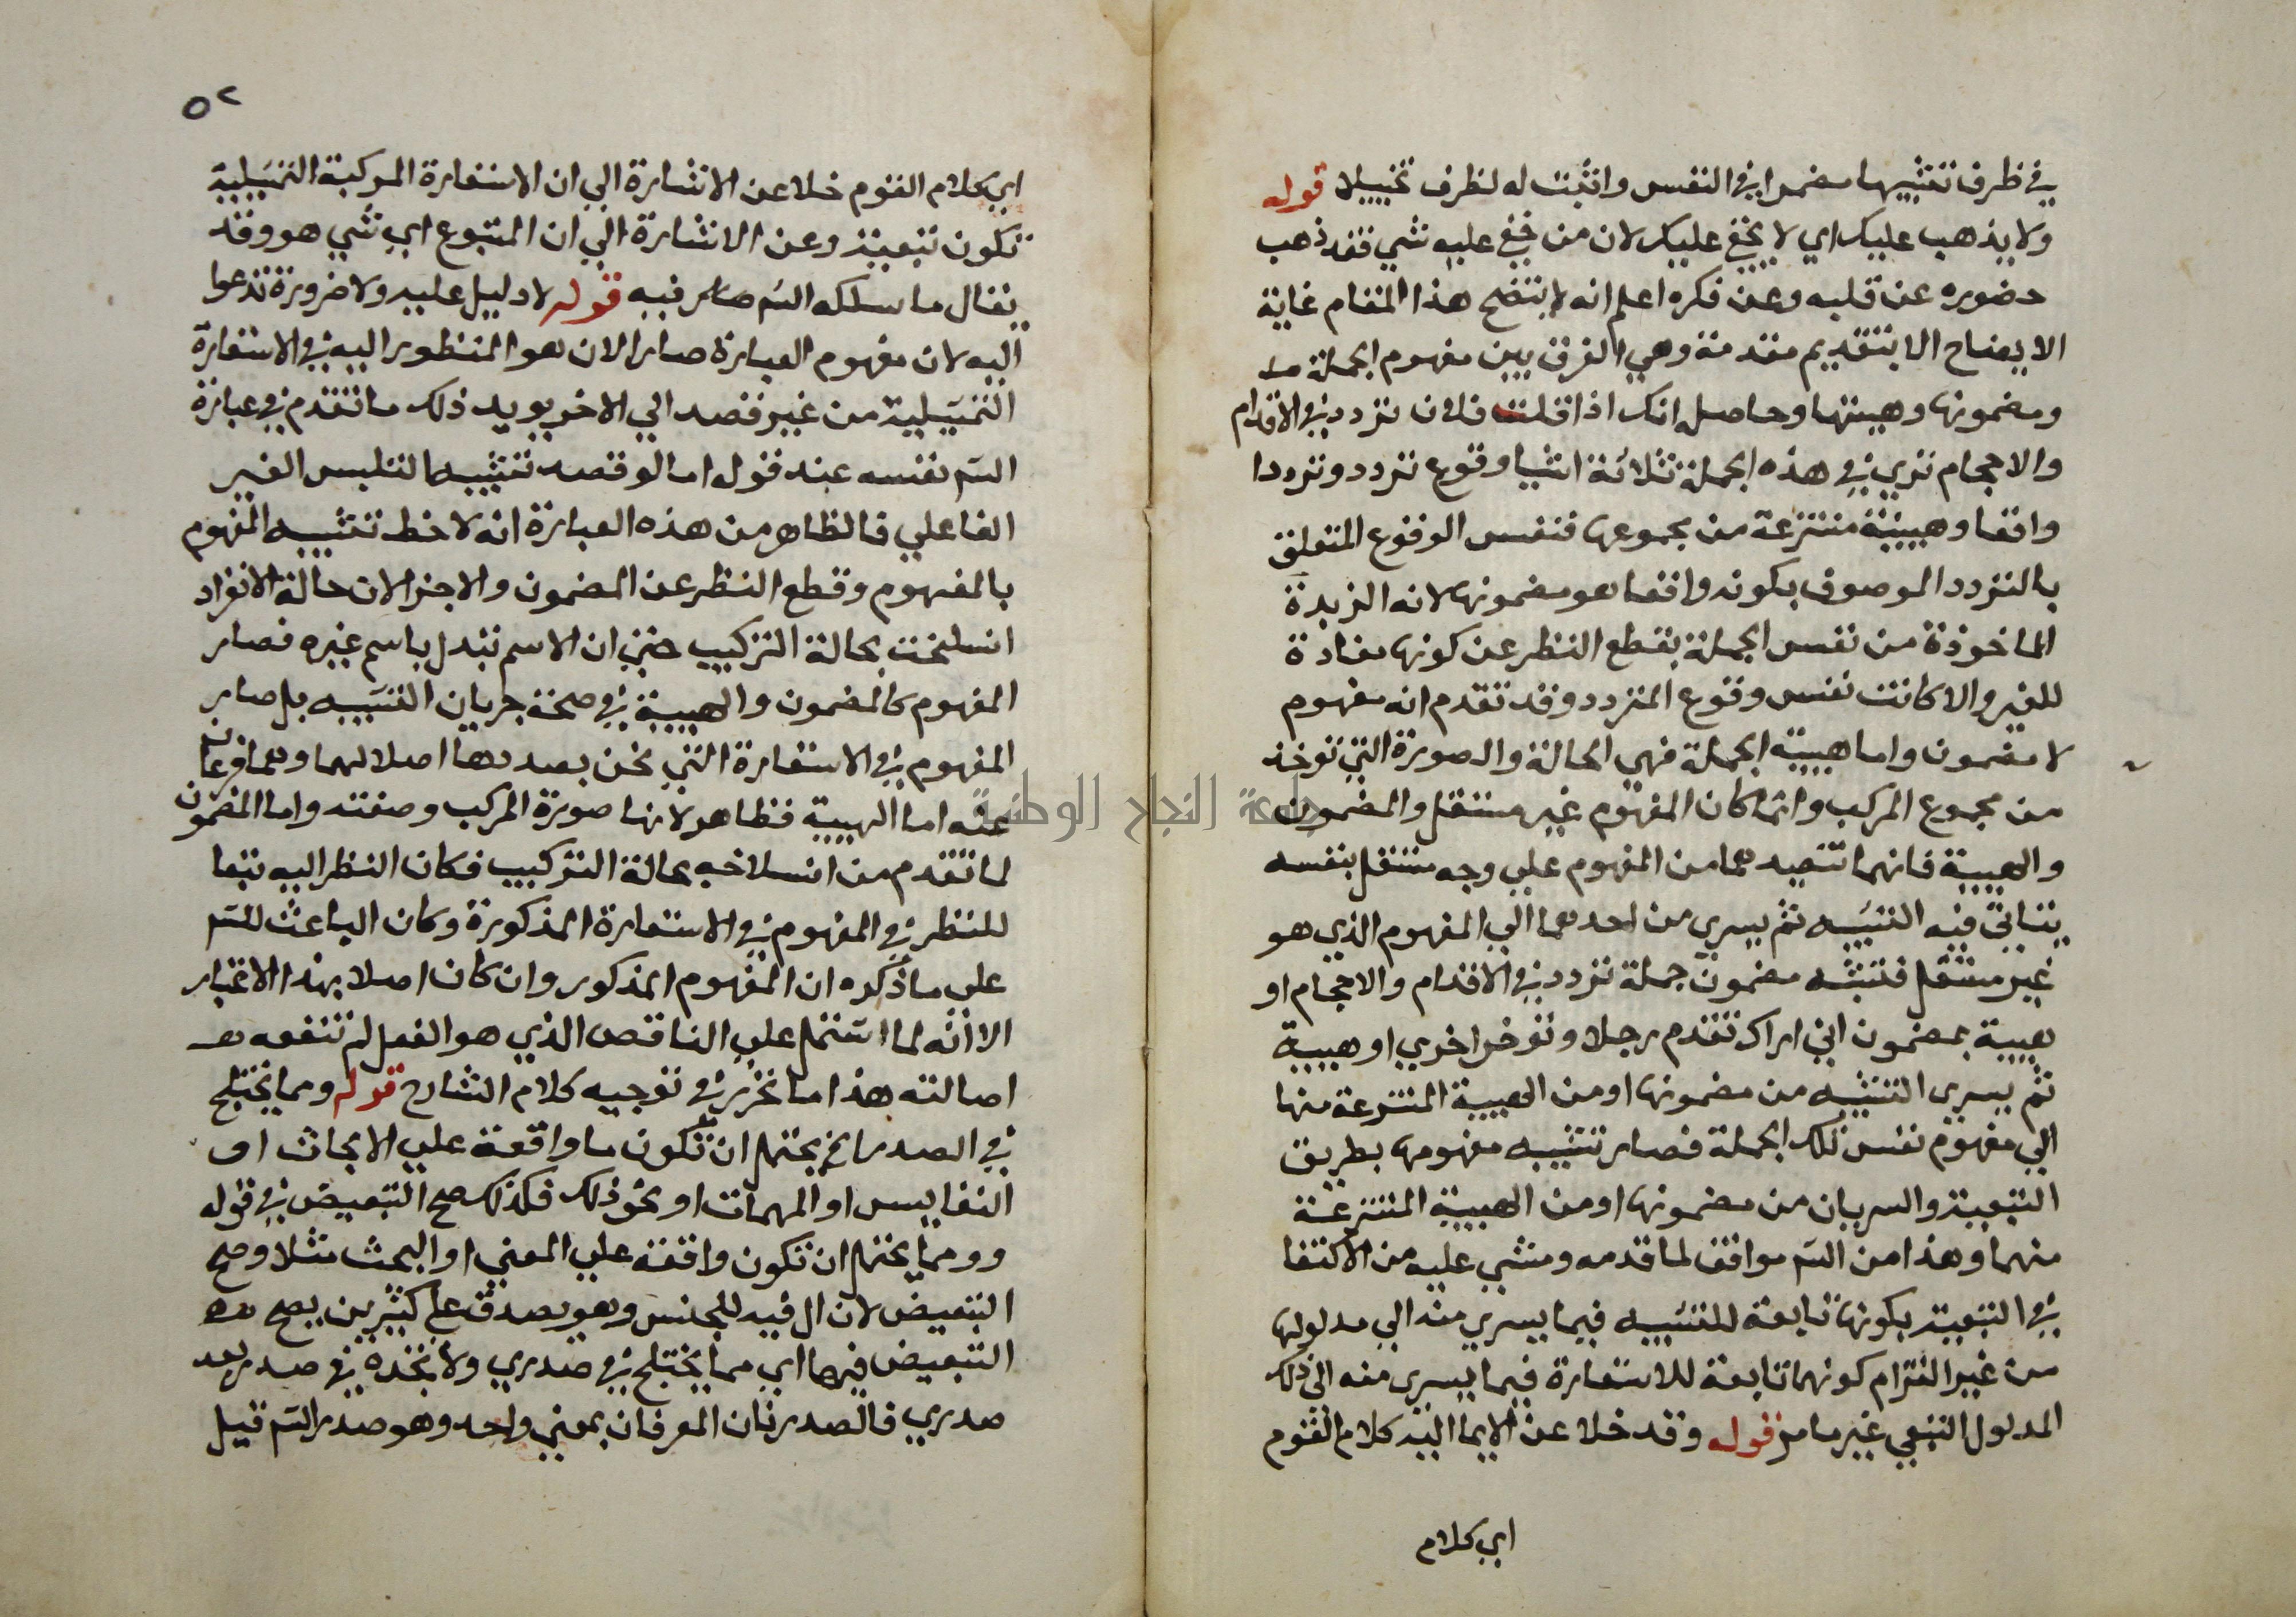 في ظرف تشبيها مضمرا في النفس واثبت له لظرف تخييلا قوله
ولا يذهب عليك اي لا يخفي عليك لان من خفي عليه شي فقد ذهب
حضوره عن قلبه وعن فكره اعلم انه لا يتضح هذا المقام غاية
الايضاح الا بتقديم مقدمة وهي الفرق بين مفهوم الجملة
ومضمونها وهيئتها وحاصله انك اذا قلت فلان تردد في الاقدام
والاحجام تري في هذه الجملة ثلاثة اشيا وقوع تردد وترددا
واقعا وهيئة منتزعة من مجموعها فنفس الوقوع المتعلق
بالتردد الموصوف بكونه واقعا هو مضمونها لانه الزبدة
الماخوذة من نفس الجملة بقطع النظر عن كونها مفادة
للغير والا كانت نفس وقوع التردد وقد تقدم انه مفهوم
لا مضمون واما هيئة الجملة فهي الحالة والصورة التي توخذ
من مجموع المركب وانما كان المفهوم غير مستقل والمضمون
والهيئة فانهما تتصيد هما من المفهوم علي وجه مستقل بنفسه
يتاتي فيه التشبيه ثم يسري من احدهما الي المفهوم الذي هو
غير مستقل فتشبه مضمون جملة تردد في الاقدام والاحجام او
هيئة بمضمون اني اراك تقدم رجلا وتوخر اخري او هيئة
ثم يسري التشبيه من مضمونها او من الهيئة المنتزعة منها
الي مفهوم نفس تلك الجملة فصار تشبيه مفهومها بطريق
التبعية والسريان من مضمونها او من الهيئة المنتزعة
منهما وهذا من الشم موافق لما قدمه ومشي عليه من الاكتفا
في التبعية بكونها تابعة للتشبيه فيما يسري منه الي مدلولها
من غير التزام كونها تابعة للاستعارة فيما يسري منه الي ذلك
المدلول التبعي غير ما مر قوله وقد خلا عن الايما اليه كلام القوم
اي كلام
٥٢
اي كلام القوم خلا عن الاشارة الي ان الاستعارة المركبة التمثيلية
تكون تبعية وعن الاشارة الي ان المتبوع اي شي هو وقد
يقال ما سلكه الشم صاير فيه قوله لا دليل عليه ولا ضرورة تدعوا
اليه لان مفهوم العبارة صار الان هو المنظور اليه في الاستعارة
التمثيلية من غير قصد الي الاخر يويد ذلك ما تقدم في عبارة
الشم نفسه عند قوله اما لو قصد تشبيه التلبس الغير
الفاعلي فالظاهر من هذه العبارة انه لاحظ تشبيه المفهوم
بالمفهوم وقطع النظر عن المضمون والاجزا لان حالة الافراد
انسلخت بحالة التركيب حتي ان الاسم تبدل باسم غيره فصار
المفهوم كالمضمون والهيئة في صحة جريان التشبيه بل صار
المفهوم في الاستعارة التي نحن بصددها اصلا لهما وهما فرعان
عنه اما الهيئة فظاهر لانها صورة المركب وصفته واما المضمون
لما تقدم من انسلاخه بحالة التركيب فكان النظر اليه تبعا
للنظر في المفهوم في الاستعارة المذكورة وكان الباعث للشم
علي ما ذكره ان المفهوم المذكور وان كان اصلا بهذا الاعتبار
الا انه لما اشتمل علي الناقص الذي هو الفعل لم تنفعه
اصالته هذا ما تحرر في توجيه كلام الشارح قوله ومما يختلج
في الصدر الخ يحتمل ان تكون ما واقعة علي الابحاث او
النفايس او المهمات او نحو ذلك فكذلك صح التبعيض في قوله
ومما يحتمل ان تكون واقعة علي المعني او البحث مثلا وصح
التبعيض لان ال فيه للجنس وهو يصدق علي كثيرين يصح
التبعيض فيها اي مما يختلج في صدري ولا تجده في صدر بعد
صدري فالصدران المعرفان بمعني واحد وهو صدر الشم قيل